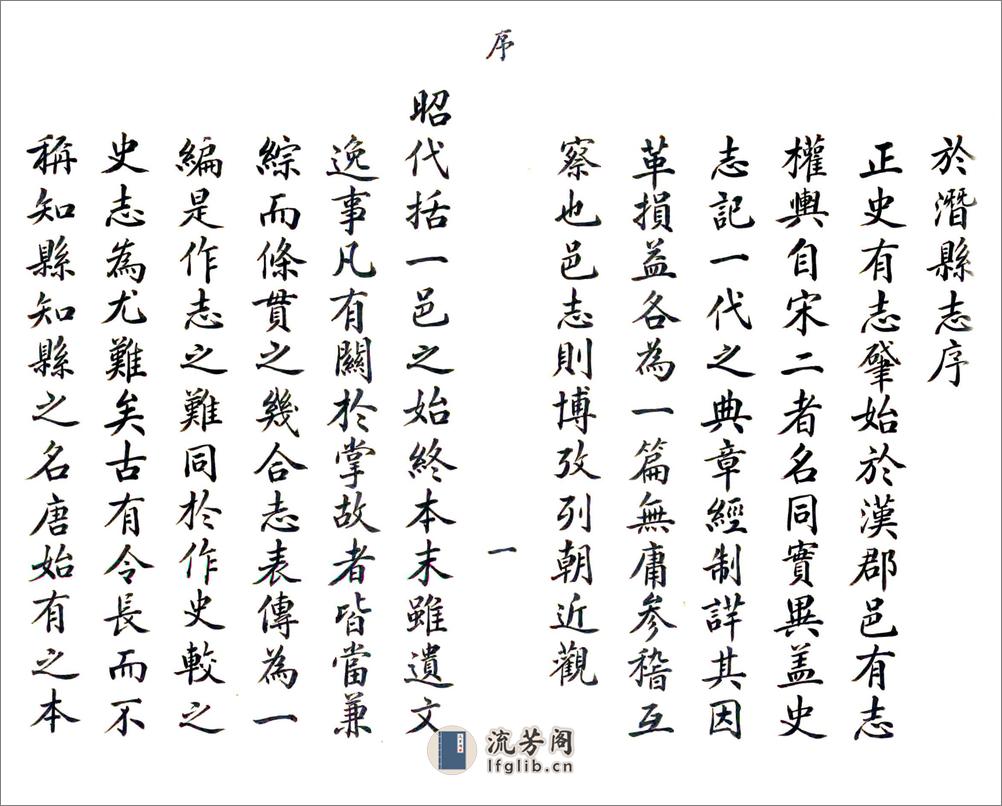 於潛縣志序
正史有志肈始於漢郡邑有志
權輿自宋二者名同實異盖史
志記一代之典章經制詳其因
革損益各為一篇無庸參稽互
察也邑志則博攷列朝近觀
序
一
昭代括一邑之始終本末雖遺文
逸事凡有關於掌故者皆當兼
綜而條貫之幾合志表傳為一
編是作志之難同於作史較之
史志為尤難矣古有令長而不
稱知縣知縣之名唐始有之本
流芳阁
lfglib.cn